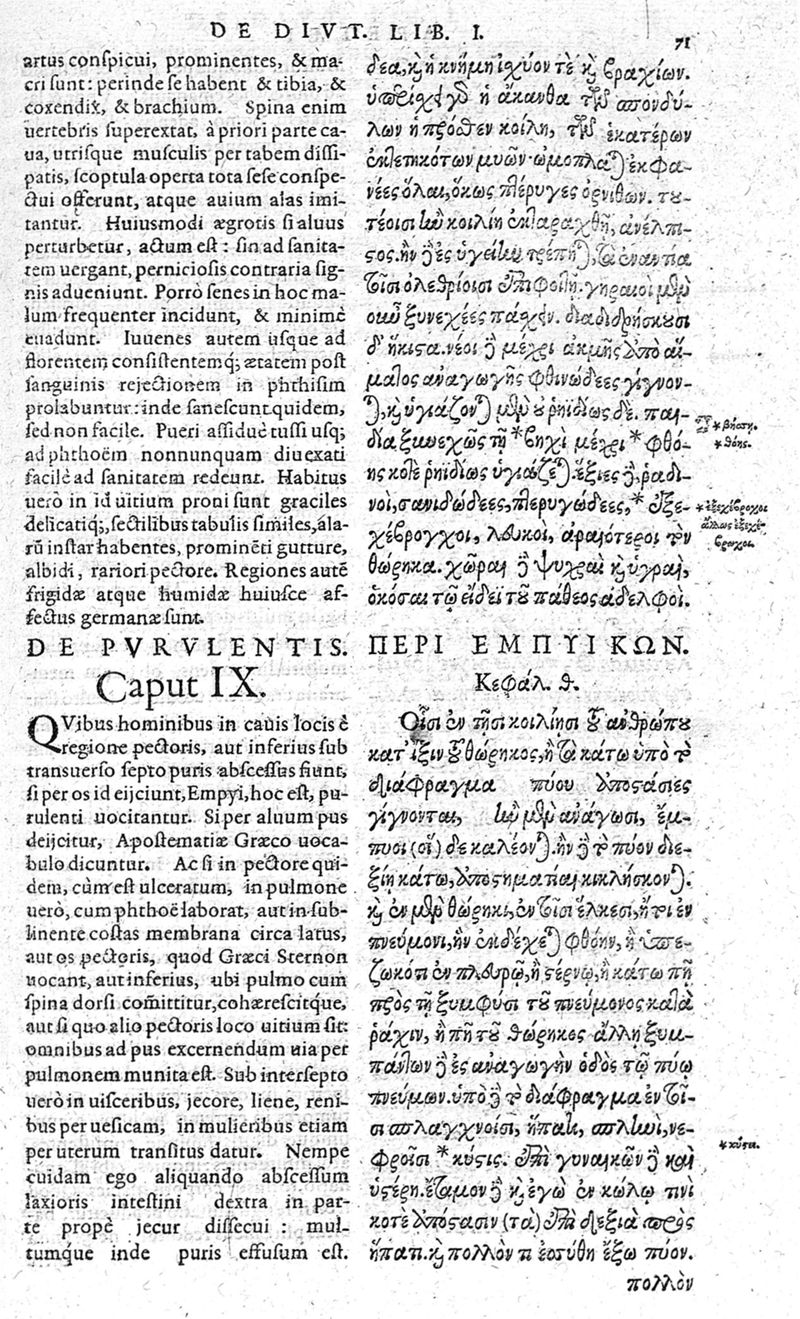 DE DIUT. LIB. I. 71
artus conspicui, prominentes, & ma-
cri sunt: perinde se habent & tibia, &
coxendix, & brachium. Spina enim
uertebris superextat, à priori parte ca-
ua, utrisque musculis per tabem dissi-
patis, scoptula operta tota sese conspe-
ctui offerunt, atque auium alas imi-
tantur. Huiusmodi ægrotis si aluus
perturbetur, actum est: sin ad sanita-
tem uergant, perniciosis contraria sig-
nis adueniunt. Porrò senes in hoc ma-
lum frequenter incidunt, & minimè
euadunt. Iuuenes autem usque ad
florentem consistentemq́; ætatem post
sanguinis rejectionem in phthisim
prolabuntur: inde sanescunt quidem,
sed non facile. Pueri assiduè tussi usq;
ad phthoëm nonnunquam diuexati
facilè ad sanitatem redeunt. Habitus
uerò in id uitium proni sunt graciles
delicatiq́;, sectilibus tabulis similes, ala-
rū instar habentes, prominēti gutture,
albidi, rariori pectore. Regiones autē
frigidæ atque humidæ huiusce af-
fectus germanæ sunt.
DE PVRVLENTIS.
Caput IX.
QVibus hominibus in cauis locis è
regione pectoris, aut inferius sub
transuerso septo puris abscessus fiunt,
si per os id eijciunt, Empyi, hoc est, pu-
rulenti uocitantur. Si per aluum pus
deijcitur, Apostematiæ Græco uoca-
bulo dicuntur. Ac si in pectore qui-
dem, cùm est ulceratum, in pulmone
uerò, cum phthoë laborat, aut in sub-
linente costas membrana circa latus,
aut os pectoris, quod Græci Sternon
uocant, aut inferius, ubi pulmo cum
spina dorsi comittitur, cohærescitq́ue,
aut si quo alio pectoris loco uitium sit:
omnibus ad pus excernendum uia per
pulmonem munita est. Sub intersepto
uerò in uisceribus, jecore, liene, reni-
bus per uesicam, in mulieribus etiam
per uterum transitus datur. Nempe
cuidam ego aliquando abscessum
laxioris intestini dextra in par-
te propè jecur dissecui: mul-
tumq́ue inde puris effusum est.
δεα, καὶ ἡ κνήμη ἰχύον τὲ καὶ βραχίων.
ὑπερίχει γὸ ἡ ἄκανθα τῶν σπονδύ-
λων ἡ πρόσθεν κοίλη, τῶν ἑκατέρων
ἐκτετηκότων μυῶν· ὠμοπλάται ἐκφα-
νέες ὅλαι, ὅκως πτέρυγες ὀρνίθων. τυ-
τέοισι ἢν κοιλίη ἐκταραχθῇ, ἀνέλπι-
στος. ἢν δὲ ἐς ὑγείην τρέπηται, τὰ ἐναντία
τοῖσι ὀλεθρίοισι ἐπιφοιτῇ. γηραιοὶ μὲν
οὖν ξυνεχέες πάσχειν. διαδιδρήσκουσι
δ' ἥκιστα. νέοι δὲ μέχρι ἀκμῆς ἀπὸ αἵ-
ματος ἀναγωγῆς φθινώδεες γίγνον-
ται, καὶ ὑγιάζονται μὲν οὐ ῥηϊδίως δέ. παι-
δία ξυνεχῶς τῇ *βηχὶ μέχρι *φθό-
ης κοτε ῥηϊδίως ὑγιάζεται. ἕξιες δὲ, ῥαδι-
νοὶ, σανιδώδεες, πτερυγώδεες, *ἐξε-
χέβρογχοι, λευκοὶ, ἀραιότεροι τὸν
θώρηκα. χῶραι δὲ ψυχραὶ καὶ ὑγραὶ,
ὁκόσαι τῷ εἴδεϊ τοῦ πάθεος ἀδελφοί.
ΠΕΡΙ ΕΜΠΥΙΚΩΝ.
Κεφάλ. θ.
Οἷσι ἐν τῇσι κοιλίῃσι τοῦ ἀνθρώπου
κατ' ἴξιν τοῦ θώρηκος, ἢ τὰ κάτω ὑπὸ τὸ
διάφραγμα πύου ἀποστάσιες
γίγνονται, ἢν μὲν ἀνάγωσι, ἔμ-
πυοι (οἵ) δε καλέονται. ἢν δὲ τὸ πύον διε-
ξίῃ κάτω, ἀποστηματίαι κικλήσκονται.
κἢ ἐν μὲν θώρηκι, ἐν τοῖσι ἕλκεσι, ἤτι ἐν
πνεύμονι, ἢν ἐκδέχεται φθόην, ἢ ὑπε-
ζωκότι ἐν πλευρῷ, ἢ στέρνῳ, ἢ κάτω πῆ
πρὸς τῇ ξυμφύσι τοῦ πνεύμονος κατὰ
ῥάχιν, ἢ πῆ τοῦ θώρηκος ἄλλῃ ξυμ-
πάντων δὲ ἐς ἀναγωγὴν ὁδὸς τῷ πύῳ
πνεύμων. ὑπὸ δὲ τὸ διάφραγμα ἐν τοῖ-
σι σπλάγχνοισι, ἥπατι, σπληνὶ, νε-
φροῖσι *κύστις. ἐπὶ γυναικῶν δὲ καὶ
ὑστέρη. ἔταμον δὲ καὶ ἐγὼ ἐν κώλῳ τινὶ
κοτὲ ἀπόστασιν (τὰ) ἐπὶ δεξιὰ πρὸς
ἥπατι. καὶ πολλόν τι ἐσύθη ἔξω πύον.
πολλὸν
*βήσση.
*θόης.
*ἐξεχέβροχοι
ἄλλως ἐξεχέ-
βρωχοι.
*κύστι.